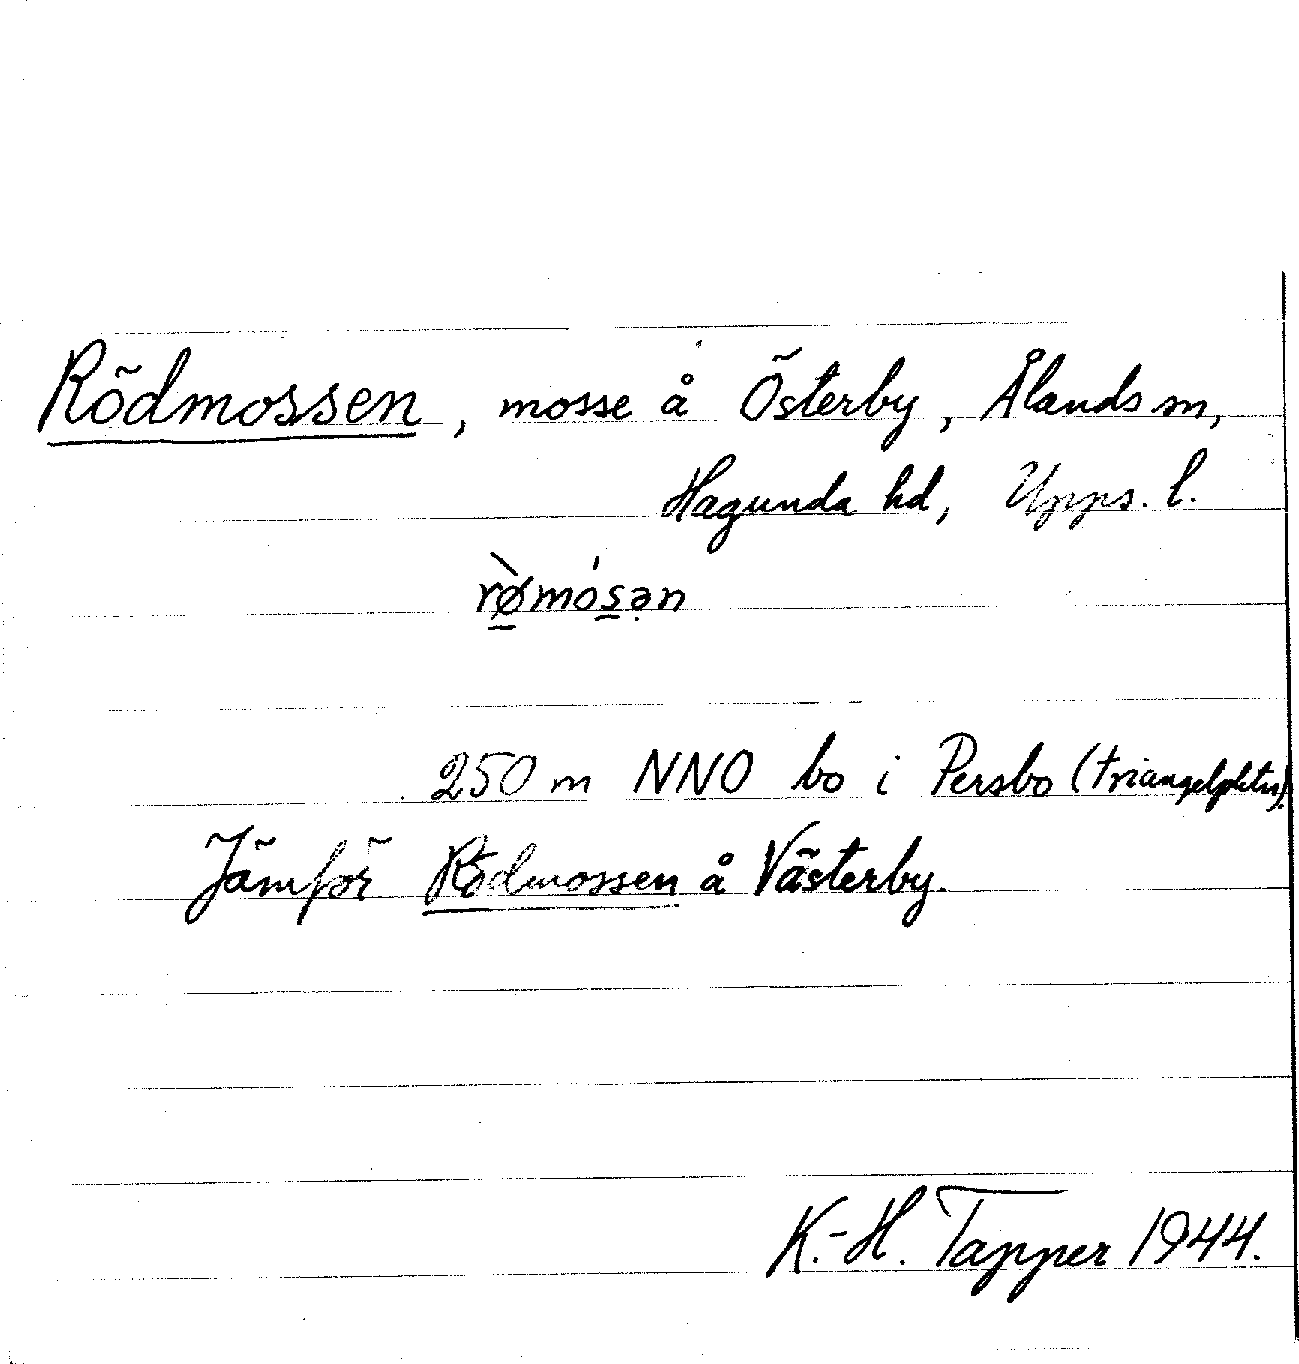 Rödmossen, mosse å Österby, Ålands sn,
Hagunda hd, Upps. l.
rø̀mósən
250 m NNO bo i Persbo (triangelpktn).
Jämför Rödmossen å Västerby.
K.-H. Tapper 1944.